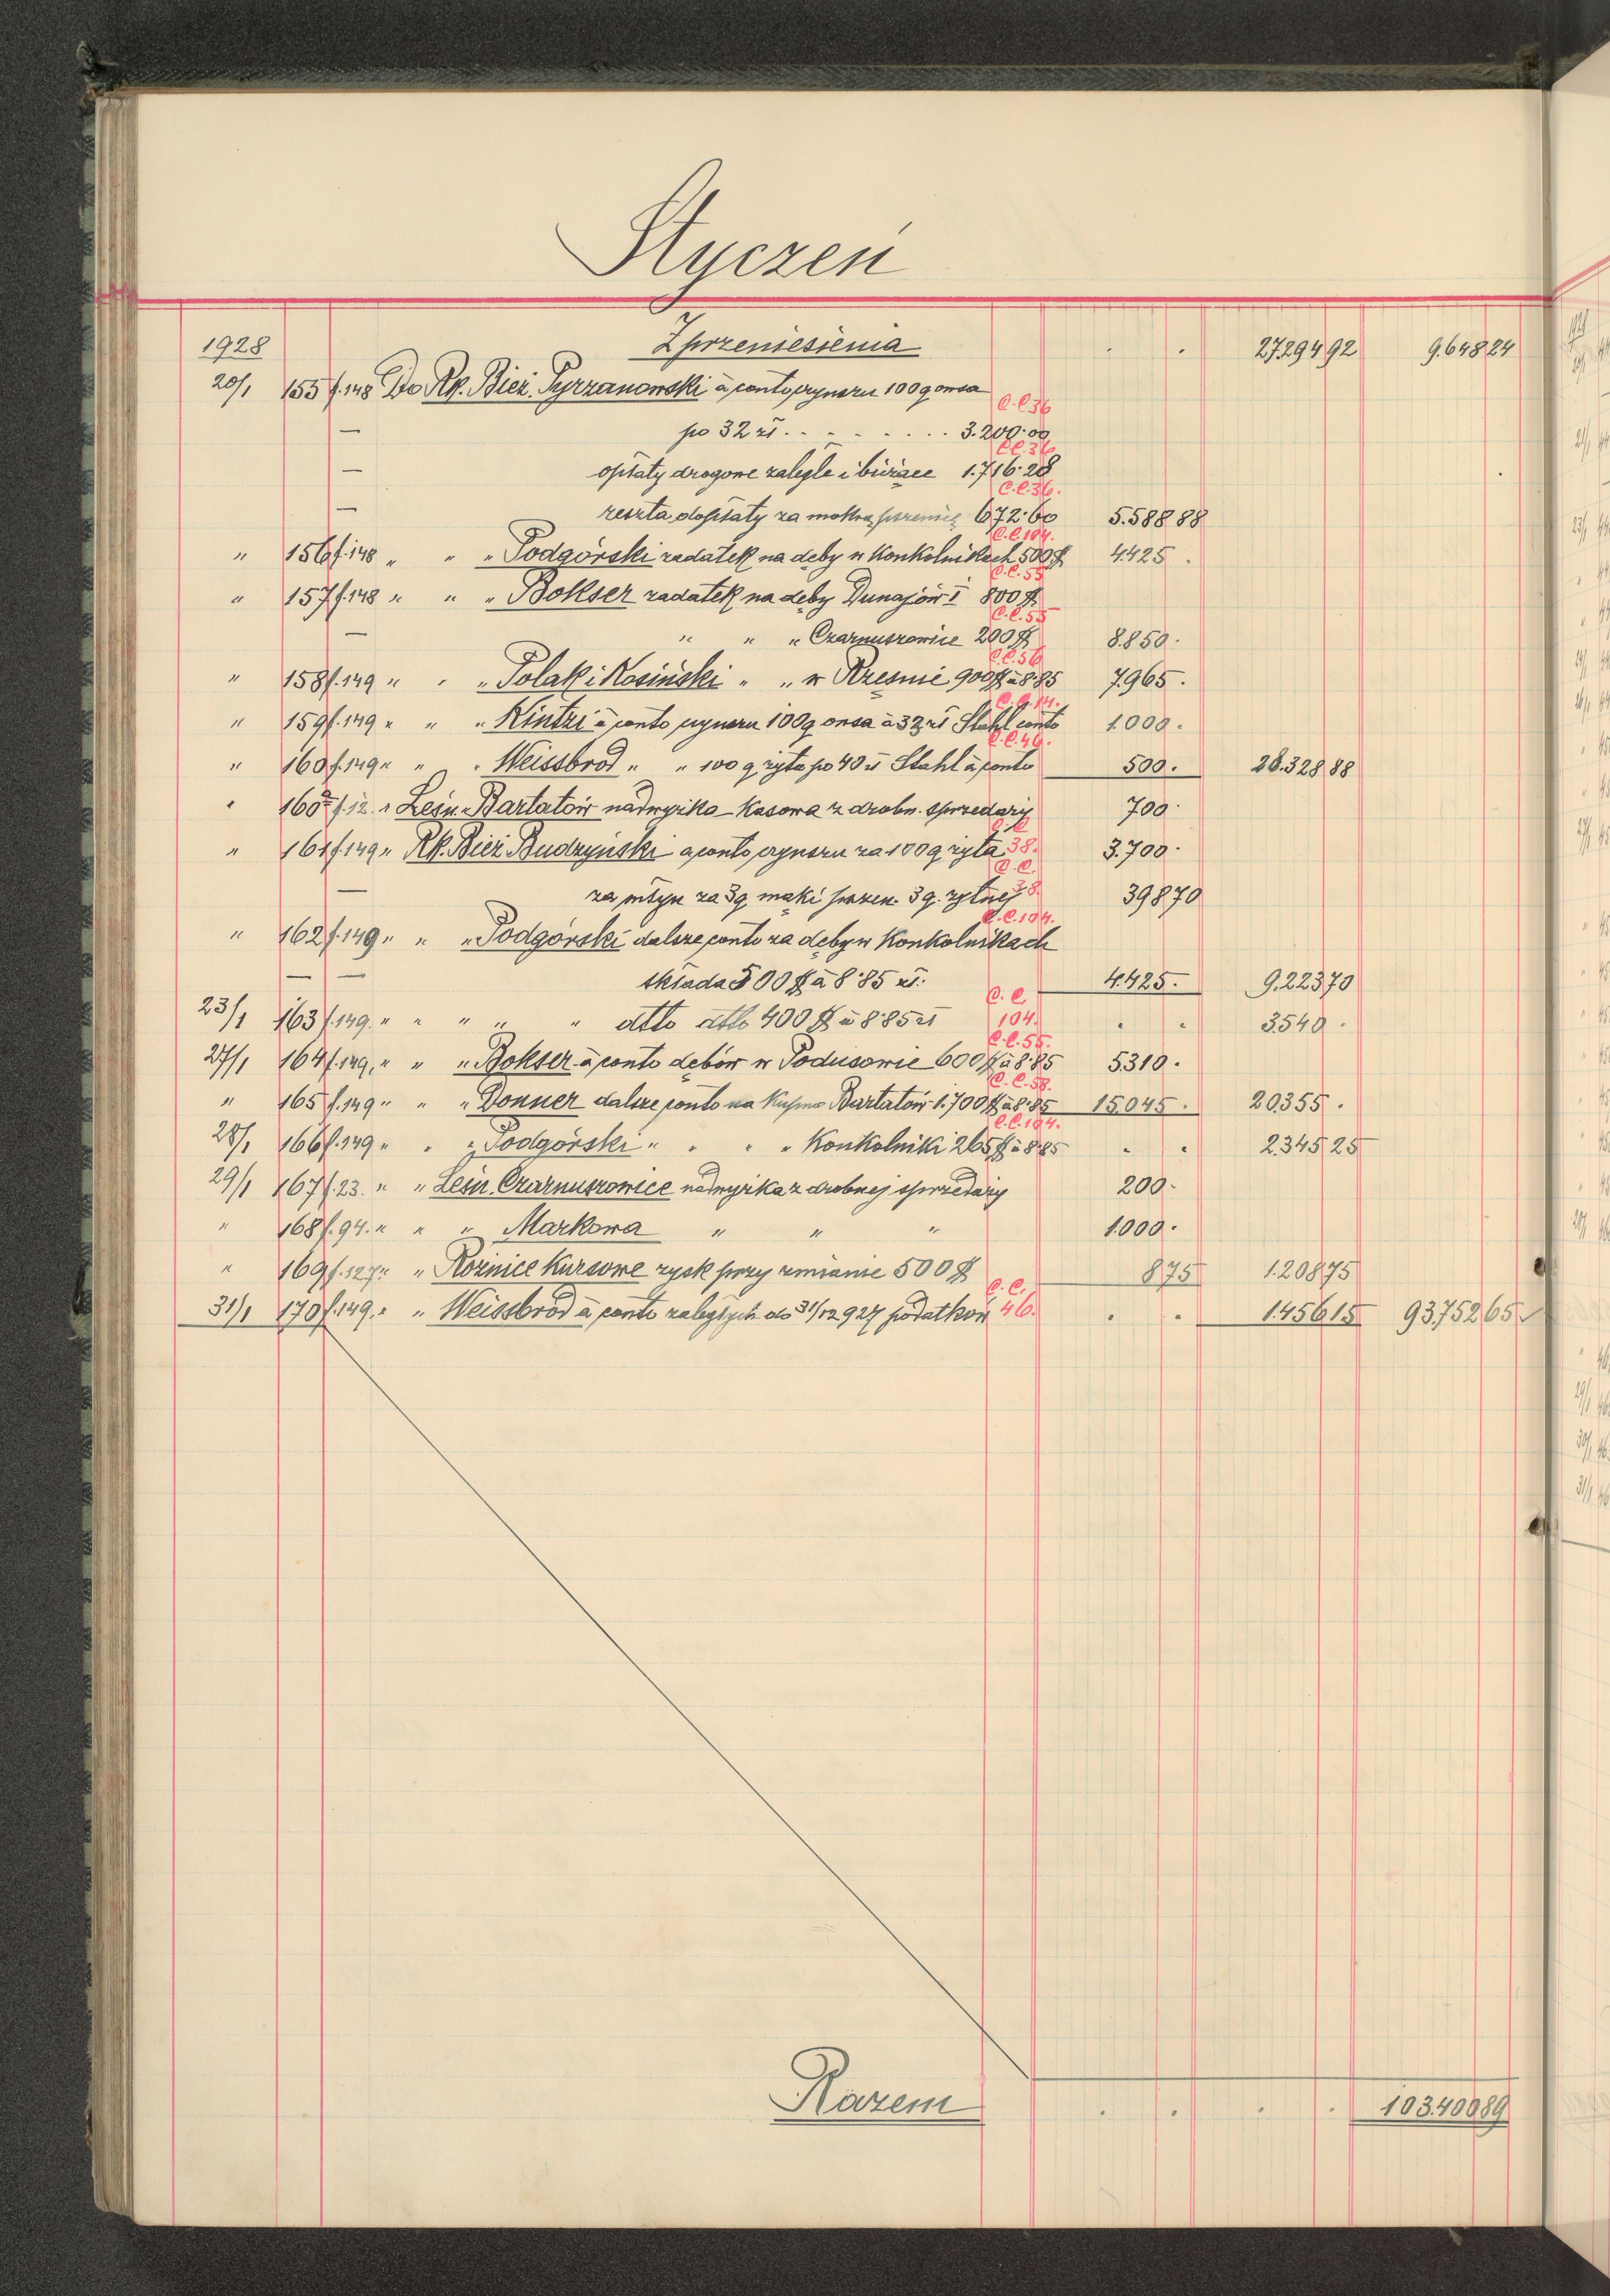 Styczeń
1928 Z przeniesienia . . 27.294 92 9.648 24
20/1 155 f.148 Do Rk. Bież. Tyrzanowski à conto czynszu 100 q owsa C.C. 36
— po 32 zł. . . . . . . . 3.200·00 C.C. 36
— opłaty drogowe zaległe i bieżące 1.716·28 C.C. 36.
— reszta dopłaty za mokrą pszenicę 672·60 5.588 88
" 156 f.148 " " " Podgórski zadatek na dęby w Konkolnikach 500 $ C.C. 104. 4.425 .
" 157 f.148 " " " Bokser zadatek na dęby Dunajów I 800 $ C.C. 55
— " " " Czarnuszowice 200 $ C.C. 55 8.850 .
" 158 f.149 " " " Polak i Kosiński " " w Rzesnie 900 $ à 8·85 C.C. 56 7.965 .
" 159 f.149 " " " Kintzi à conto czynszu 100 q owsa à 32 zł Stahl conto C.C. 14. 1.000 .
" 160 f.149 " " " Weissbrod " " 100 q żyta po 40 zł Stahl à conto C.C. 46. 500 . 28.328 88
" 160a f.12 " Leśn. Bartatów nadwyżka kasowa z drobn. sprzedaży 700 .
" 161 f.149 " Rk. Bież Budzyński a conto czynszu za 100 q żyta C.C. 38. 3.700 .
— za młyn za 3 q mąki pszen. 3 q. żytniej C.C. 38. 398 70
" 162 f.149 " " " Podgórski dalsze conto za dęby w Konkolnikach C.C. 104.
— — składa 500 $ à 8·85 zł. 4.425 . 9.223 70
23/1 163 f.149. " " " " " dtto dtto 400 $ à 8·85 zł C.C. 104. . . 3.540 .
27/1 164 f.149. " " " Bokser à conto dębów w Podusowie 600 $ à 8·85 C.C. 55. 5.310 .
" 165 f.149 " " " Donner dalsze conto na kupno Bartatów 1.700 $ à 8·85 C.C. 58. 15.045 . 20.355 .
28/1 166 f.149 " " " Podgórski " " " " Konkolniki 265 $ à 8·85 C.C. 104. . . 2.345 25
29/1 167 f.23. " " Leśn. Czarnuszowice nadwyżka z drobnej sprzedaży 200 .
" 168 f.94. " " " Markowa " " " 1.000 .
" 169 f.127 " " Różnice Kursowe zysk przy zmianie 500 $ 8 75 1.208 75
31/1 170 f.149. " " Weissbrod à conto zaległych do 31/12 927 podatków C.C. 46. . . 1.456 15 93.752 65
Razem . . . . 103.400 89